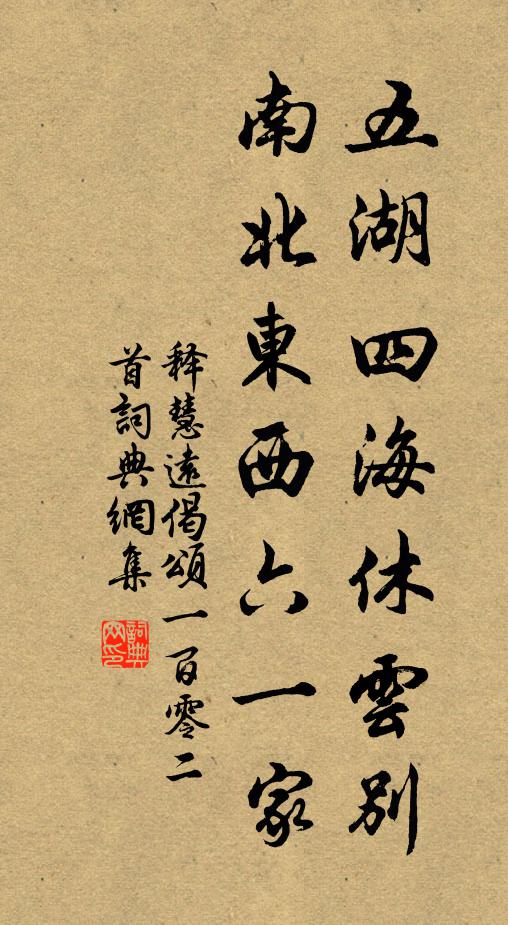 五湖四海休雲別
南北東西六一家
釋慧遠偈頌一百零二
首詞典網集
詞典網印